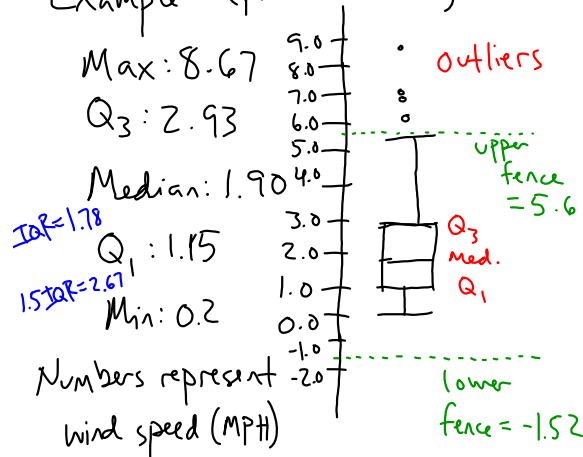 Example
Max: 8.67
Q3: 2.93
Median: 1.90
IQR=1.78
Q1: 1.15
1.5IQR=2.67
Min: 0.2
Numbers represent
wind speed (MPH)
9.0
8.0
7.0
6.0
5.0
4.0
3.0
2.0
1.0
0.0
-1.0
-2.0
outliers
upper
fence
=5.6
Q3
med.
Q1
lower
fence=-1.52